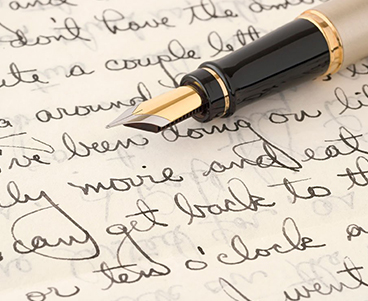 don't have the am
a couple lett
around
I've been doing on li
movie and eat
can get back to th
or ten o'clock a
I went